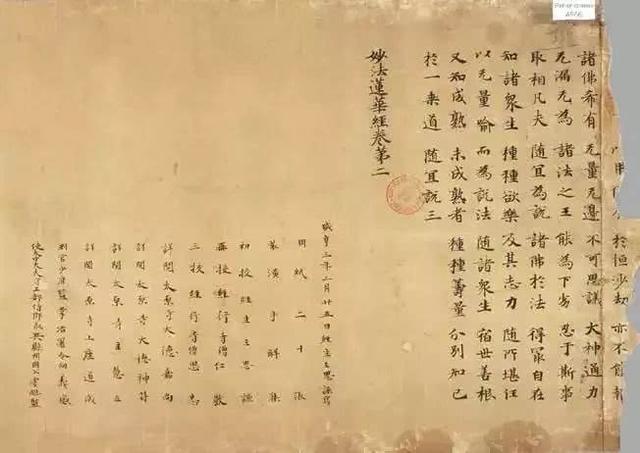 於恒沙劫 亦不能報
諸佛希有 无量无邊 不可思議 大神通力
无漏无為 諸法之王 能為下劣 忍于斯事
取相凡夫 隨宜為說 諸佛於法 得㝡自在
知諸衆生 種種欲樂 及其志力 隨所堪任
以无量喻 而為說法 隨諸衆生 宿世善根
又知成熟 未成熟者 種種籌量 分別知已
於一乘道 隨宜說三
妙法蓮華經卷第二
咸亨三年二月廿五日經生王思謙寫
用紙二十張
裝潢手解集
初校經生王思謙
再校經行寺僧仁敬
三校經行寺僧思忠
詳閱太原寺大德嘉尚
詳閱太原寺大德神符
詳閱太原寺主慧立
詳閱太原寺上座道成
判官少府監掌冶署令向義感
使太中大夫守工部侍郎永興縣開國公虞昶監